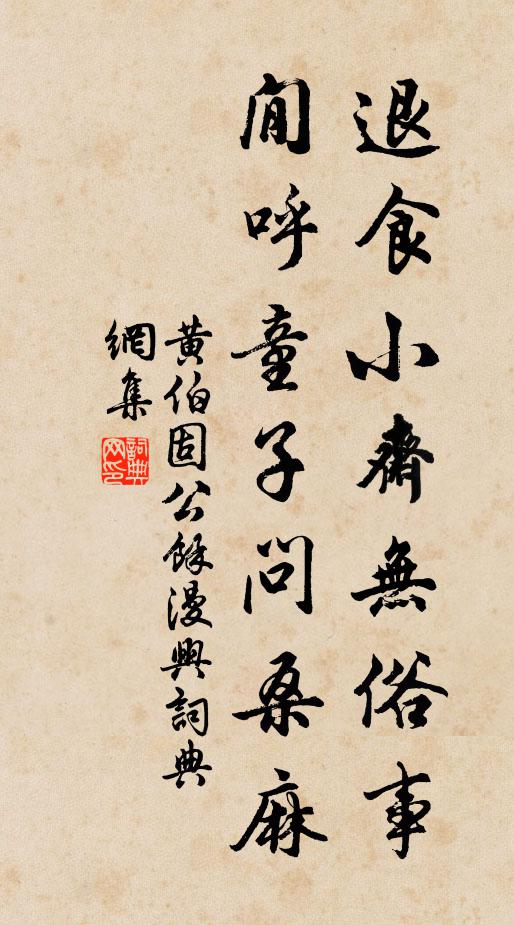 退食小齋無俗事
閒呼童子問桑麻
黄伯固公餘漫興詞典
網集
詞典
网印